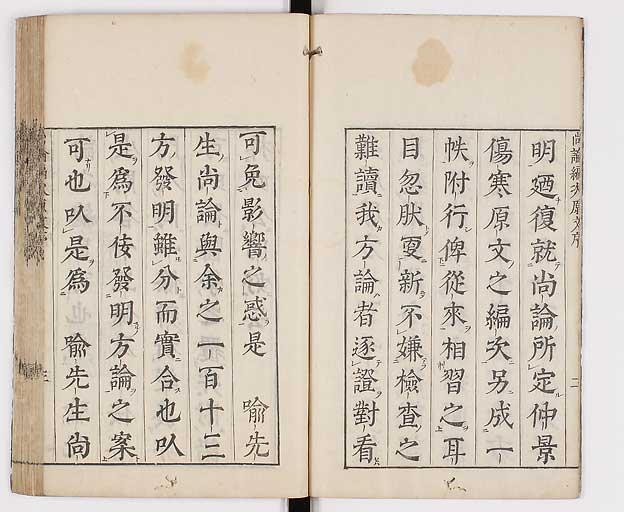 尚論編次原文序
明廼復就尚論所定仲景
傷寒原文之編次另成一
帙附行俾從來相習之耳
目忽肰更新不嫌檢查之
難讀我方論者逐證對看
可免影響之惑是　喻先
生尚論與余之一百十三
方發明雖分而實合也㕥
是爲不佞發明方論之案
可也㕥是爲　喻先生尚